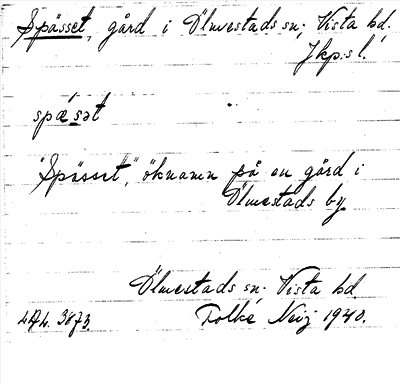 Spässet, gård i Ölmestads sn; Vista hd.
Jkp:s l.
spæsət
"Spässet", öknamn på en gård i
Ölmestads by
Ölmestads sn. Vista hd.
Folke Neij 1940.